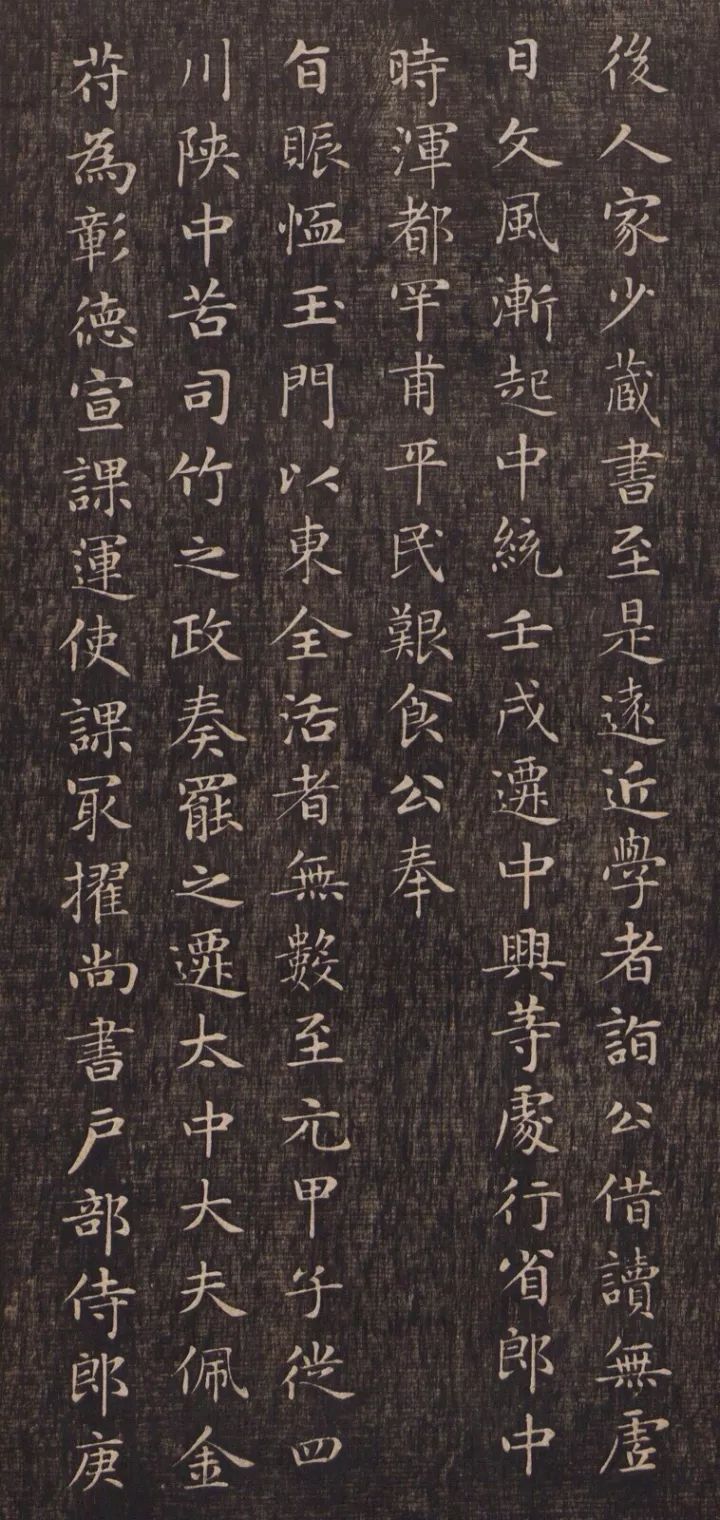 後人家少蔵書至是遠近學者詣公借讀無虛
日文風漸起中統壬戌遷中興等處行省郎中
時渾都罕甫平民艱食公奉
旨賑恤玉門以東全活者無數至元甲子從四
川陝中苦司竹之政奏罷之遷太中大夫佩金
苻為彰德宣課運使課冣擢尚書戶部侍郎庚